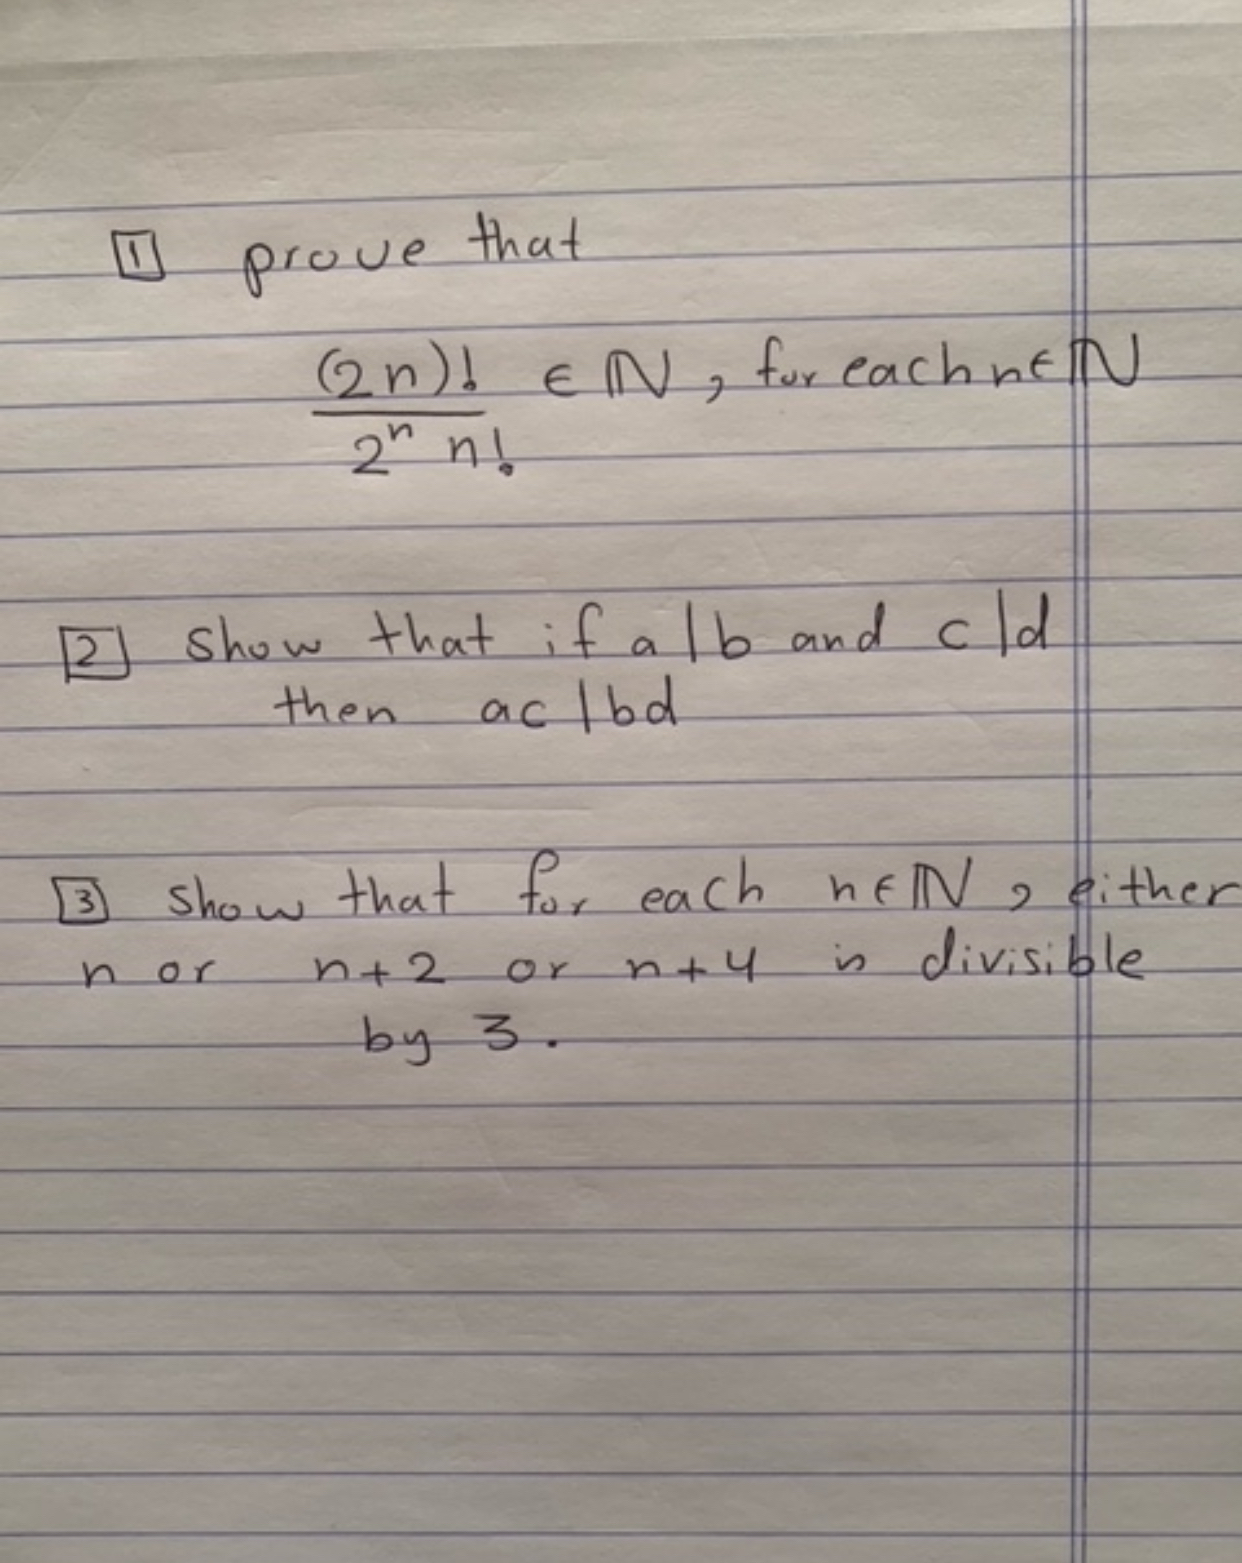 1 prove that
(2n)! / 2ⁿ n! ∈ ℕ, for each n∈ℕ
2 show that if a|b and c|d
then ac|bd
3 show that for each n∈ℕ, either
n or n+2 or n+4 is divisible
by 3.